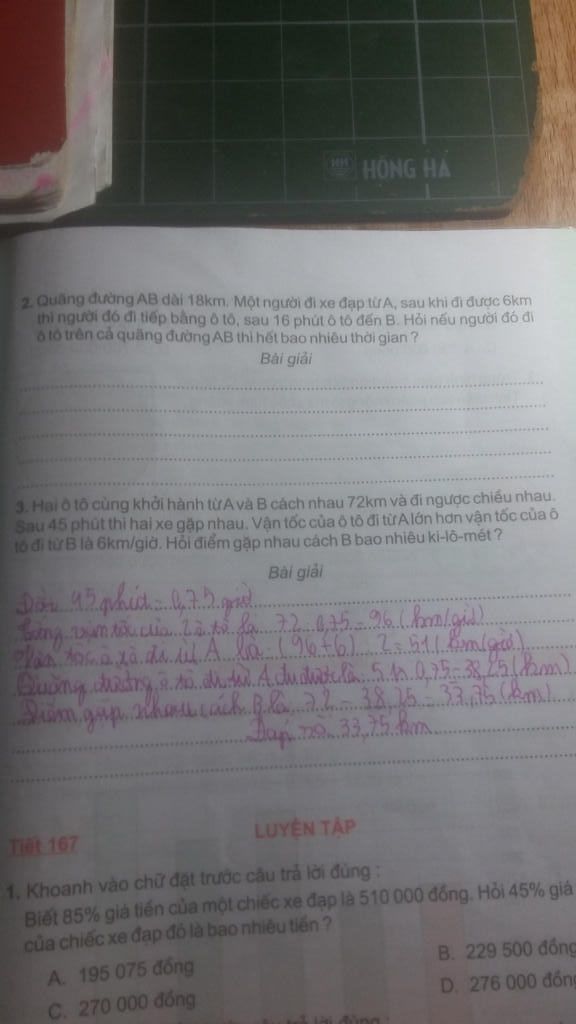 HH HỒNG HÀ
2. Quãng đường AB dài 18km. Một người đi xe đạp từ A, sau khi đi được 6km
thì người đó đi tiếp bằng ô tô, sau 16 phút ô tô đến B. Hỏi nếu người đó đi
ô tô trên cả quãng đường AB thì hết bao nhiêu thời gian ?
Bài giải
3. Hai ô tô cùng khởi hành từ A và B cách nhau 72km và đi ngược chiều nhau.
Sau 45 phút thì hai xe gặp nhau. Vận tốc của ô tô đi từ A lớn hơn vận tốc của ô
tô đi từ B là 6km/giờ. Hỏi điểm gặp nhau cách B bao nhiêu ki-lô-mét ?
Bài giải
Đổi 45 phút = 0,75 giờ
Tổng vận tốc của 2 ô tô là 72 : 0,75 = 96 (km/giờ)
Vận tốc ô tô đi từ A là (96+6) : 2 = 51 (km/giờ)
Quãng đường ô tô đi từ A đi được là 51 x 0,75 = 38,25 (km)
Điểm gặp nhau cách B là 72 - 38,25 = 33,75 (km)
Đáp số 33,75 km
Tiết 167
LUYỆN TẬP
1. Khoanh vào chữ đặt trước câu trả lời đúng :
Biết 85% giá tiền của một chiếc xe đạp là 510 000 đồng. Hỏi 45% giá
của chiếc xe đạp đó là bao nhiêu tiền ?
A. 195 075 đồng
B. 229 500 đồng
C. 270 000 đồng
D. 276 000 đồng
trả lời đúng :